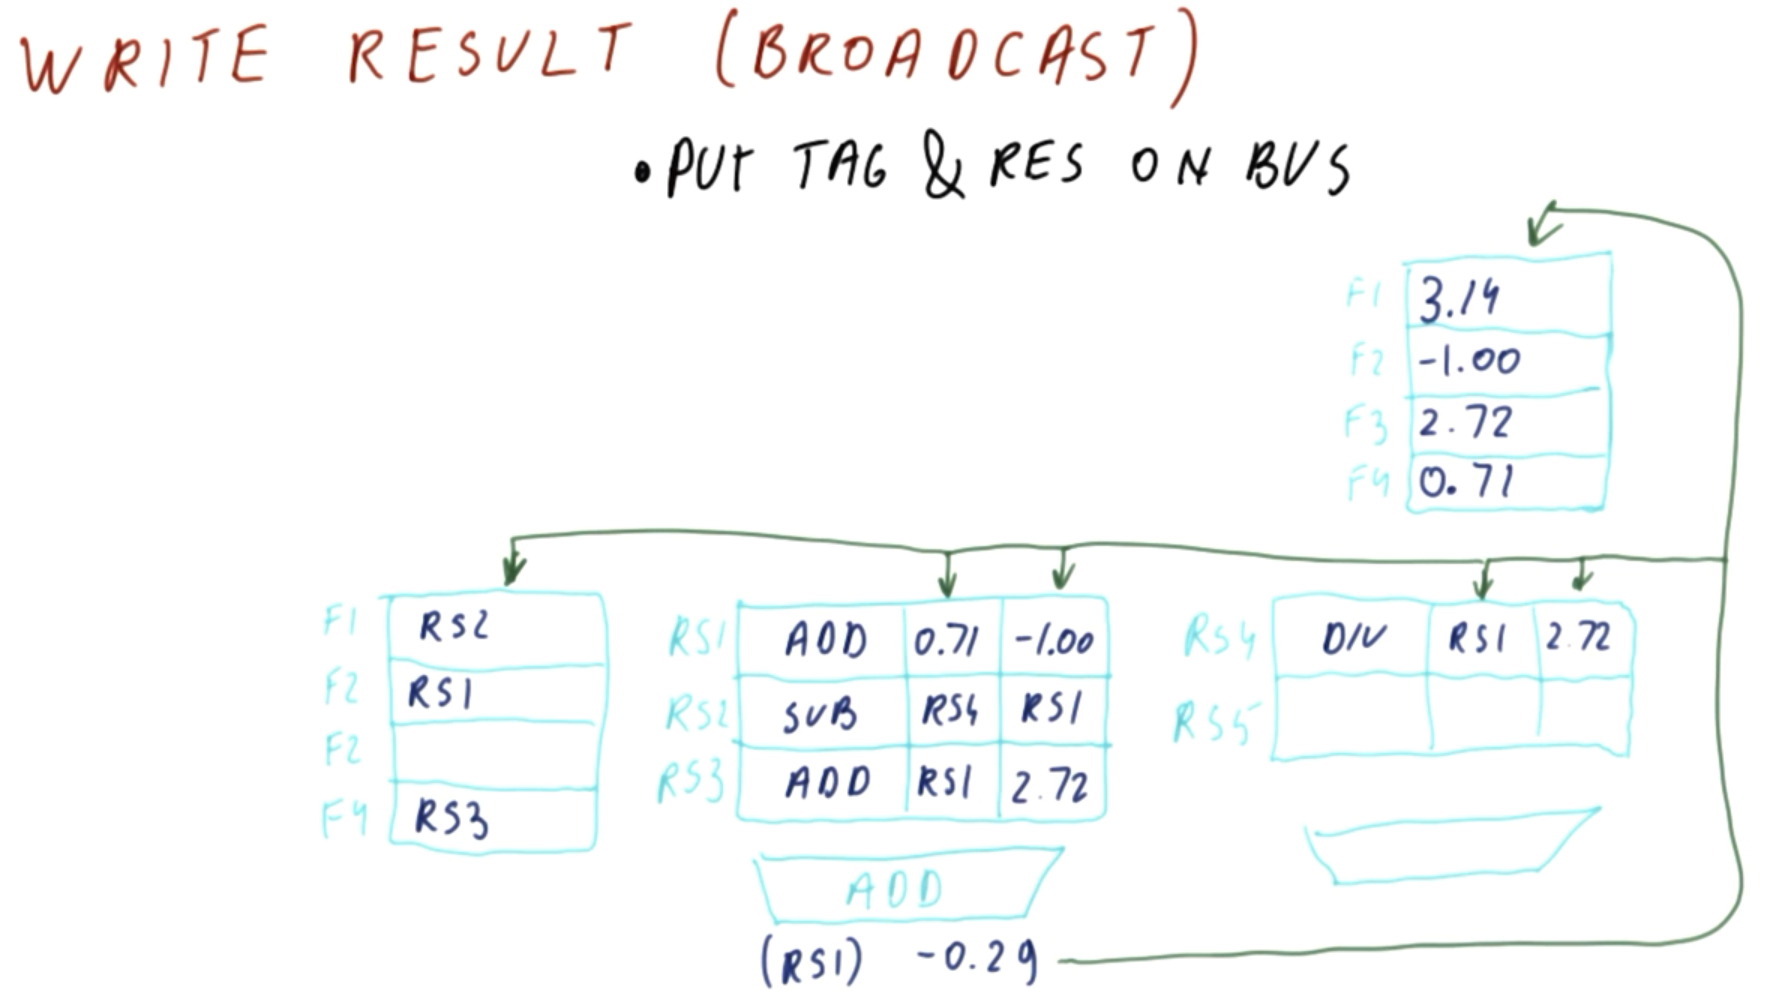 WRITE RESULT (BROADCAST)
• PUT TAG & RES ON BUS
F1 3.14
F2 -1.00
F3 2.72
F4 0.71
F1 RS2
F2 RS1
F2
F4 RS3
RS1 ADD 0.71 -1.00
RS2 SUB RS4 RS1
RS3 ADD RS1 2.72
ADD
(RS1) -0.29
RS4 DIV RS1 2.72
RS5